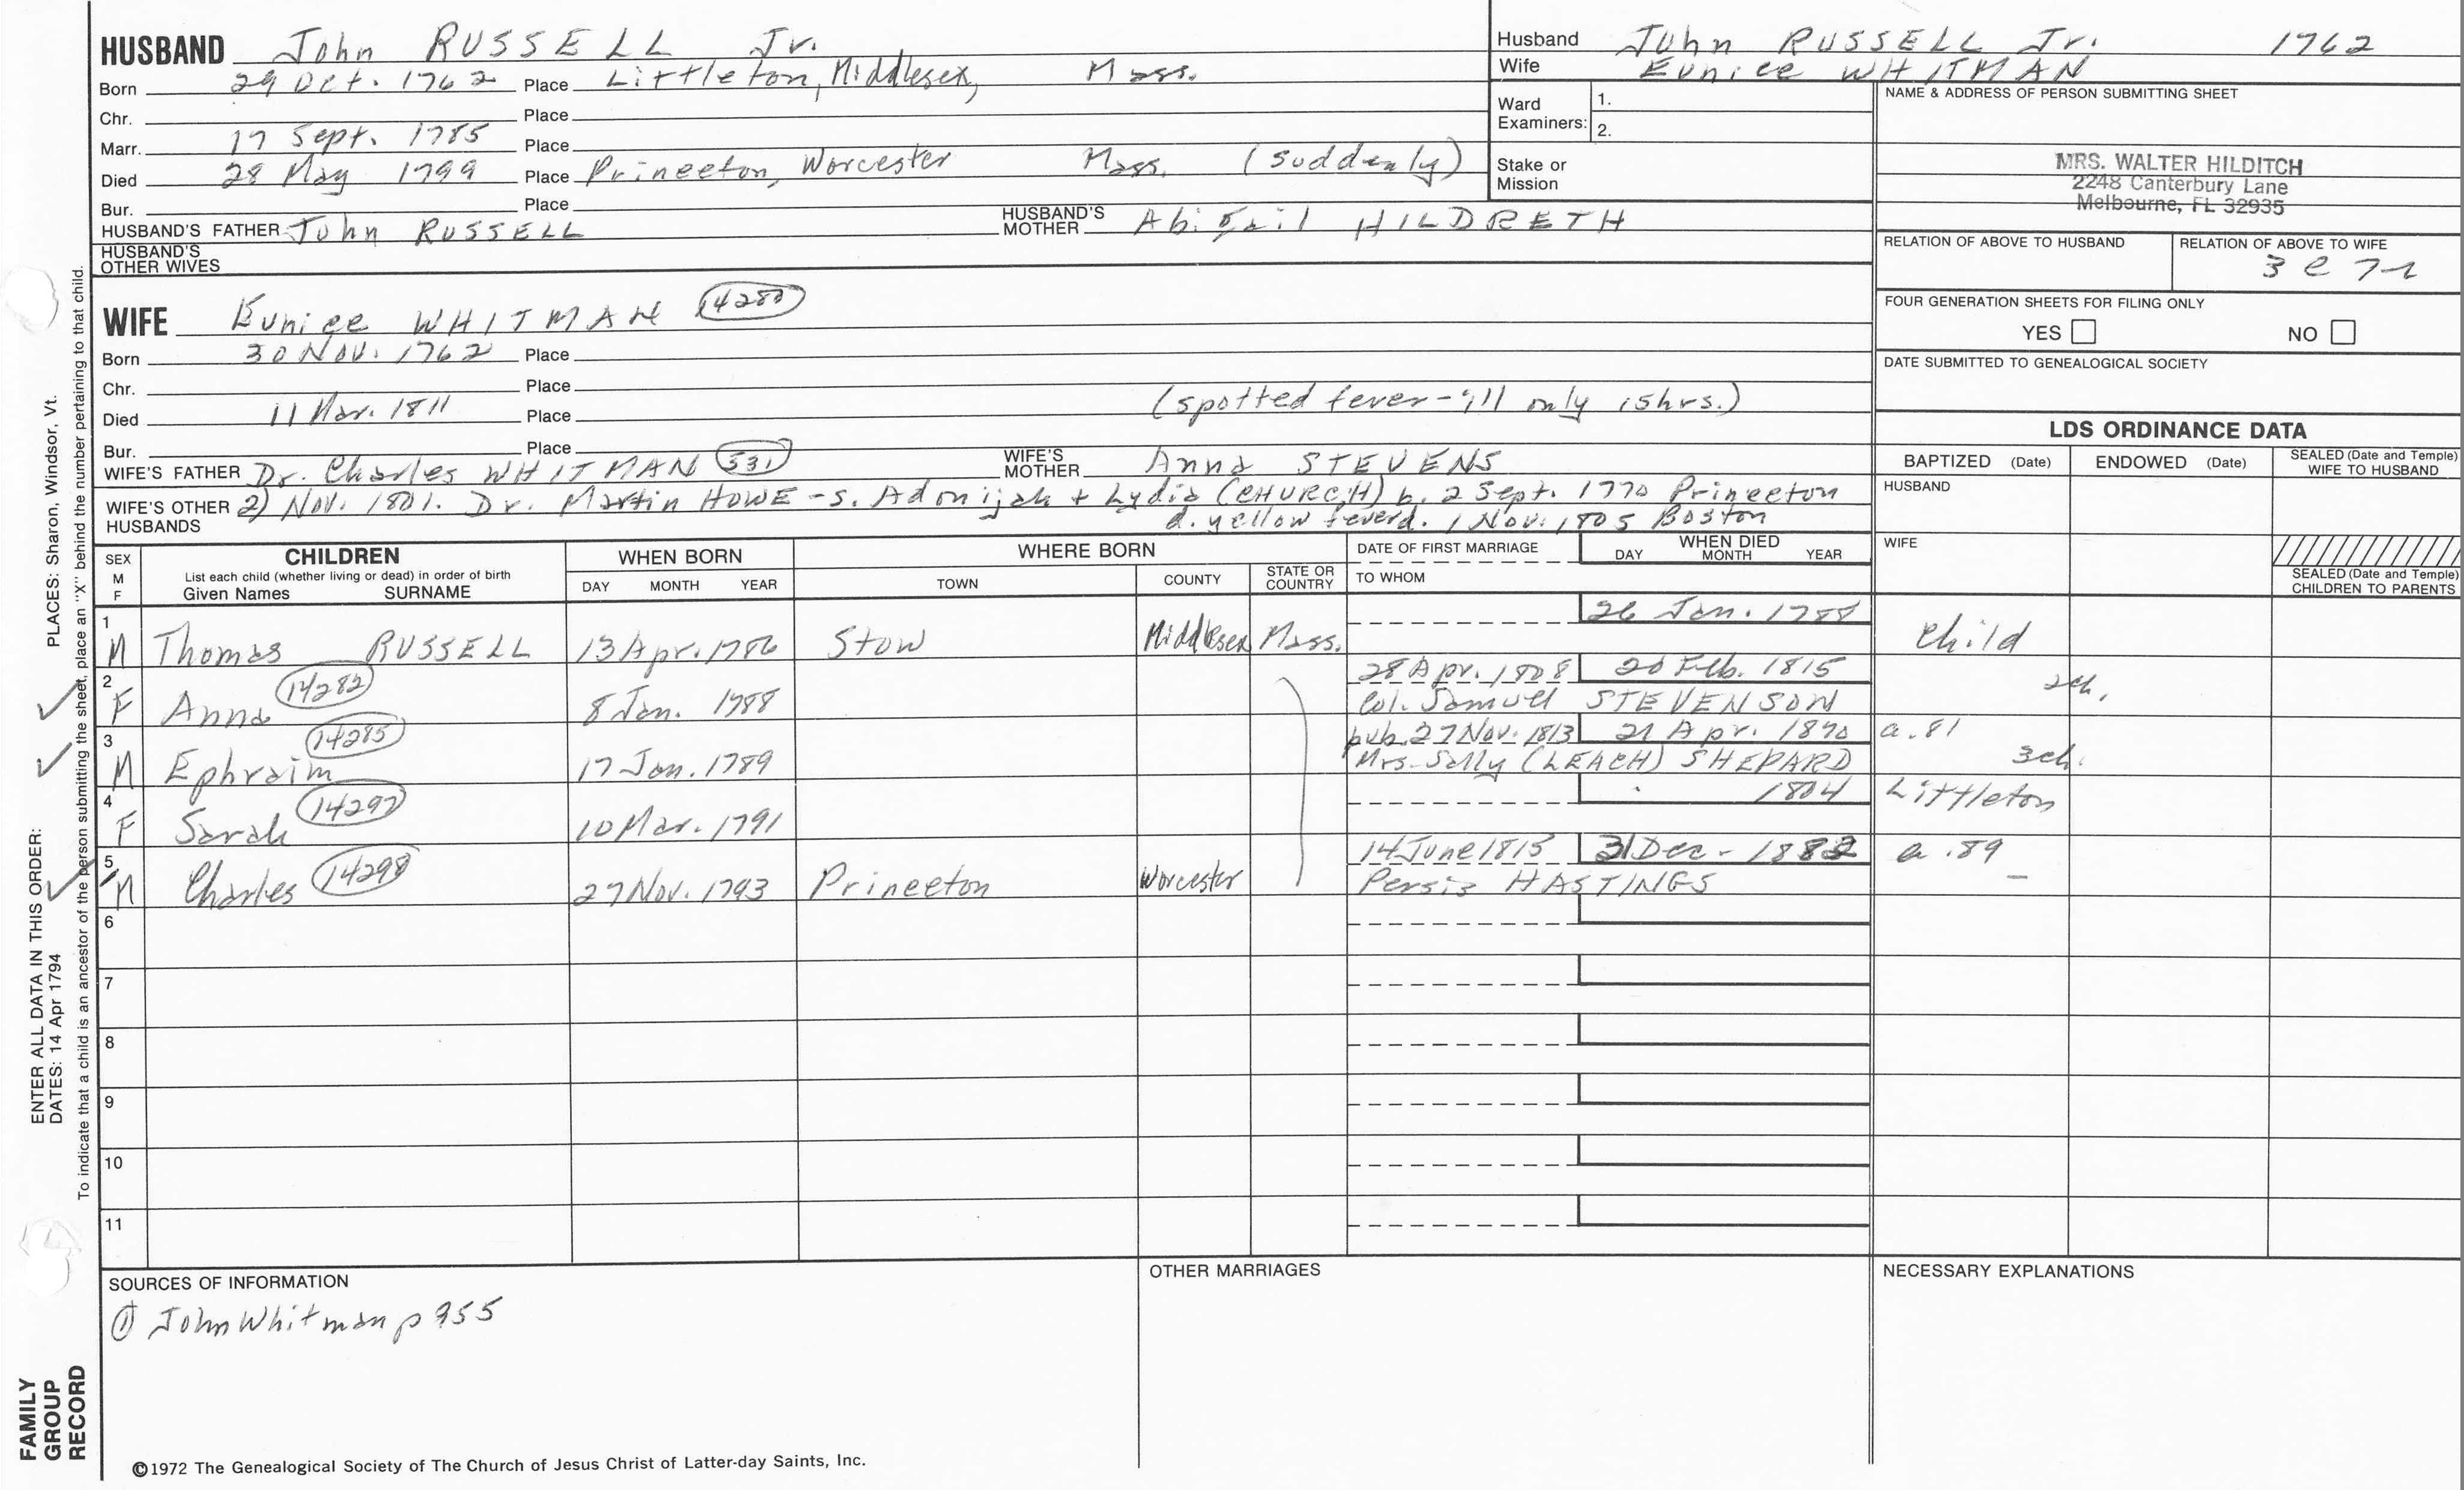 HUSBAND John RUSSELL Jr.
Born 29 Oct. 1762 Place Littleton, Middlesex, Mass.
Chr. Place
Marr. 17 Sept. 1785 Place
Died 28 May 1799 Place Princeton, Worcester Mass. (suddenly)
Bur. Place
HUSBAND'S FATHER John RUSSELL HUSBAND'S MOTHER Abigail HILDRETH
HUSBAND'S OTHER WIVES
Husband John RUSSELL Jr. 1762
Wife Eunice WHITMAN
Ward Examiners: 1.
2.
Stake or Mission
NAME & ADDRESS OF PERSON SUBMITTING SHEET
MRS. WALTER HILDITCH
2248 Canterbury Lane
Melbourne, FL 32935
RELATION OF ABOVE TO HUSBAND
RELATION OF ABOVE TO WIFE
FOUR GENERATION SHEETS FOR FILING ONLY
YES NO
DATE SUBMITTED TO GENEALOGICAL SOCIETY
WIFE Eunice WHITMAN 14280
Born 30 Nov. 1762 Place
Chr. Place
Died 11 Mar. 1811 Place (spotted fever - ill only 15hrs.)
Bur. Place
WIFE'S FATHER Dr. Charles WHITMAN 531 WIFE'S MOTHER Anna STEVENS
WIFE'S OTHER HUSBANDS 2) Nov. 1801. Dr. Martin HOWE - s. Adonijah + Lydia (CHURCH) b. 2 Sept. 1770 Princeton
d. yellow fever d. 1 Nov. 1805 Boston
LDS ORDINANCE DATA
BAPTIZED (Date) ENDOWED (Date) SEALED (Date and Temple) WIFE TO HUSBAND
HUSBAND
WIFE
SEALED (Date and Temple) CHILDREN TO PARENTS
SEX M F
CHILDREN
List each child (whether living or dead) in order of birth
Given Names SURNAME
WHEN BORN
DAY MONTH YEAR
WHERE BORN
TOWN COUNTY STATE OR COUNTRY
DATE OF FIRST MARRIAGE
TO WHOM
WHEN DIED
DAY MONTH YEAR
1 26 Jan. 1788
M Thomas RUSSELL 13 Apr. 1786 Stow Middlesex Mass. child
2 14282 28 Apr. 1808 20 Feb. 1815 2ch.
F Anna 8 Jan. 1788 Col. Samuel STEVENSON
3 14285 pub. 27 Nov. 1813 21 Apr. 1870 a. 81
M Ephraim 17 Jan. 1789 Mrs. Sally (LEACH) SHEPARD 3ch.
4 14297 1804 Littleton
F Sarah 10 Mar. 1791
5 14298 14 June 1815 31 Dec - 1882 a. 89
M Charles 27 Nov. 1793 Princeton Worcester Persis HASTINGS -
6
7
8
9
10
11
SOURCES OF INFORMATION
① John Whitman p 955
OTHER MARRIAGES
NECESSARY EXPLANATIONS
©1972 The Genealogical Society of The Church of Jesus Christ of Latter-day Saints, Inc.
FAMILY GROUP RECORD
ENTER ALL DATA IN THIS ORDER:
DATES: 14 Apr 1794 PLACES: Sharon, Windsor, Vt.
To indicate that a child is an ancestor of the person submitting the sheet, place an "X" behind the number pertaining to that child.